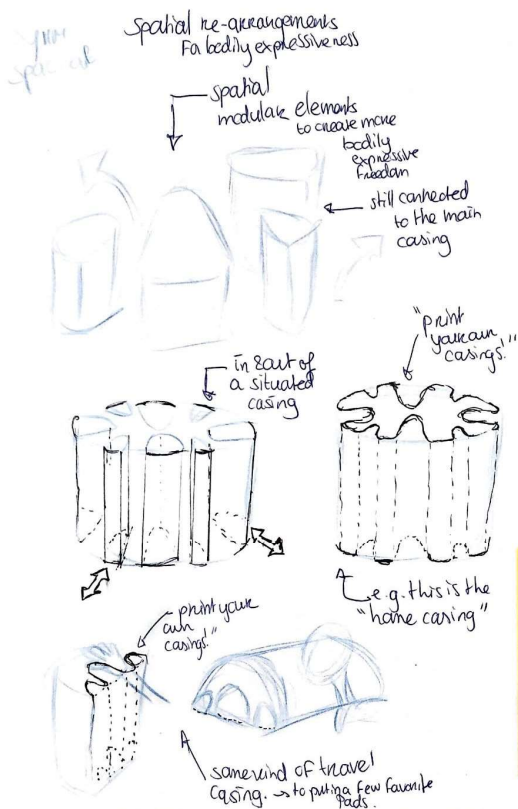 Spatial re-arrangements
Fa bodily expressiveness
spatial
modular elements
to create more
bodily
expressive
freedom
still connected
to the main
casing
"print
your own
casings!"
in & out of
a situated
casing
e.g. this is the
"home casing"
print your
own
casings!"
some kind of travel
casing. → to put in a few favorite
pads.